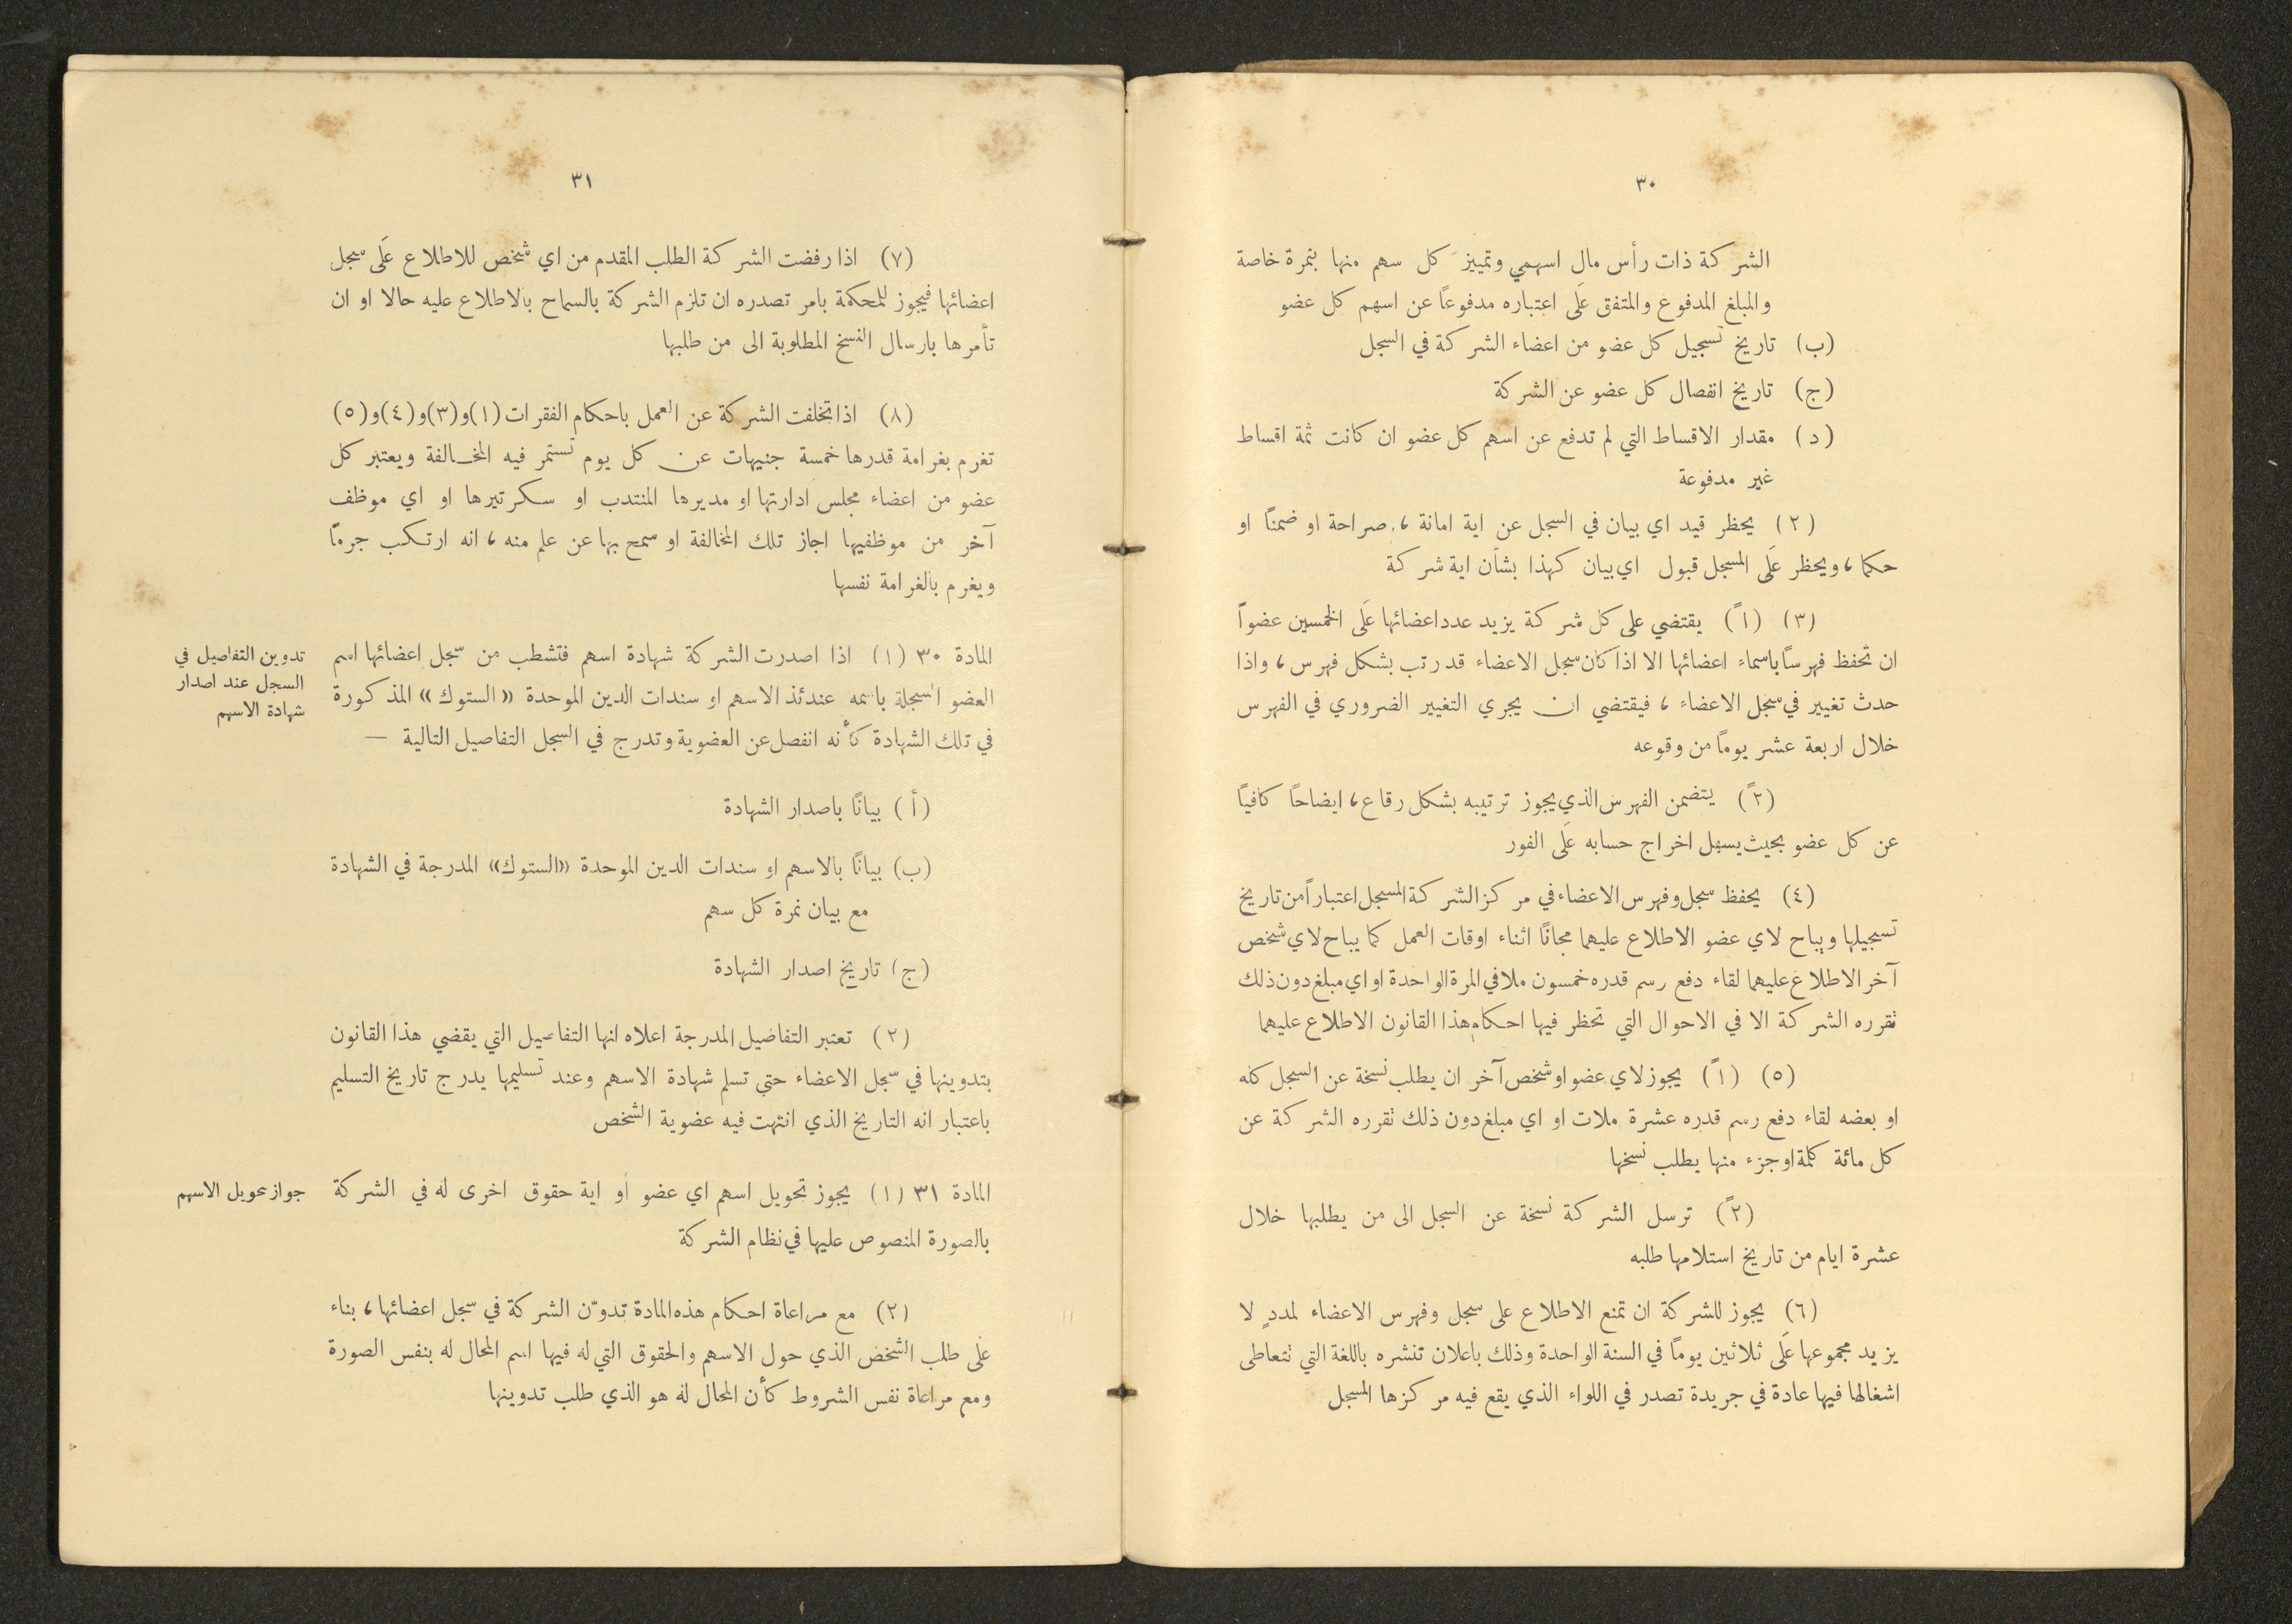 ٣٠
الشركة ذات رأس مال اسهمي وتمييز كل سهم منها بنمرة خاصة
والمبلغ المدفوع والمتفق عَلَى اعتباره مدفوعًا عن اسهم كل عضو
(ب) تاريخ تسجيل كل عضو من اعضاء الشركة في السجل
(ج) تاريخ انفصال كل عضو عن الشركة
(د) مقدار الاقساط التي لم تدفع عن اسهم كل عضو ان كانت ثمة اقساط
غير مدفوعة
(٢) يحظر قيد اي بيان في السجل عن اية امانة ، صراحة او ضمنًا او
حكما ، ويحظر عَلَى المسجل قبول اي بيان كهذا بشأن اية شركة
(٣) (١ً) يقتضي على كل شركة يزيد عدد اعضائها عَلَى الخمسين عضواً
ان تحفظ فهرسًا باسماء اعضائها الا اذا كان سجل الاعضاء قد رتب بشكل فهرس ، واذا
حدث تغيير في سجل الاعضاء ، فيقتضي ان يجري التغيير الضروري في الفهرس
خلال اربعة عشر يومًا من وقوعه
(٢ً) يتضمن الفهرس الذي يجوز ترتيبه بشكل رقاع ، ايضاحًا كافيًا
عن كل عضو بحيث يسهل اخراج حسابه عَلَى الفور
(٤) يحفظ سجل وفهرس الاعضاء في مركز الشركة المسجل اعتباراً من تاريخ
تسجيلها ويباح لاي عضو الاطلاع عليهما مجانًا اثناء اوقات العمل كما يباح لاي شخص
آخر الاطلاع عليهما لقاء دفع رسم قدره خمسون ملا في المرة الواحدة او اي مبلغ دون ذلك
تقرره الشركة الا في الاحوال التي تحظر فيها احكام هذا القانون الاطلاع عليهما
(٥) (١ً) يجوز لاي عضو او شخص آخر ان يطلب نسخة عن السجل كله
او بعضه لقاء دفع رسم قدره عشرة ملات او اي مبلغ دون ذلك تقرره الشركة عن
كل مائة كلمة او جزء منها يطلب نسخها
(٢ً) ترسل الشركة نسخة عن السجل الى من يطلبها خلال
عشرة ايام من تاريخ استلامها طلبه
(٦) يجوز للشركة ان تمنع الاطلاع على سجل وفهرس الاعضاء لمددٍ لا
يزيد مجموعها عَلَى ثلاثين يومًا في السنة الواحدة وذلك باعلان تنشره باللغة التي تتعاطى
اشغالها فيها عادة في جريدة تصدر في اللواء الذي يقع فيه مركزها المسجل
٣١
(٧) اذا رفضت الشركة الطلب المقدم من اي شخص للاطلاع عَلَى سجل
اعضائها فيجوز للمحكمة بامر تصدره ان تلزم الشركة بالسماح بالاطلاع عليه حالا او ان
تأمرها بارسال النسخ المطلوبة الى من طلبها
(٨) اذا تخلفت الشركة عن العمل باحكام الفقرات (١) و(٣) و(٤) و(٥)
تغرم بغرامة قدرها خمسة جنيهات عن كل يوم تستمر فيه المخالفة ويعتبر كل
عضو من اعضاء مجلس ادارتها او مديرها المنتدب او سكرتيرها او اي موظف
آخر من موظفيها اجاز تلك المخالفة او سمح بها عن علم منه ، انه ارتكب جرمًا
ويغرم بالغرامة نفسها
تدوين التفاصيل في
السجل عند اصدار
شهادة الاسهم
المادة ٣٠ (١) اذا اصدرت الشركة شهادة اسهم فتشطب من سجل اعضائها اسم
العضو المسجلة باسمه عندئذ الاسهم او سندات الدين الموحدة «الستوك» المذكورة
في تلك الشهادة كأنه انفصل عن العضوية وتدرج في السجل التفاصيل التالية —
(أ) بيانًا باصدار الشهادة
(ب) بيانًا بالاسهم او سندات الدين الموحدة «الستوك» المدرجة في الشهادة
مع بيان نمرة كل سهم
(ج) تاريخ اصدار الشهادة
(٢) تعتبر التفاصيل المدرجة اعلاه انها التفاصيل التي يقضي هذا القانون
بتدوينها في سجل الاعضاء حتى تسلم شهادة الاسهم وعند تسليمها يدرج تاريخ التسليم
باعتبار انه التاريخ الذي انتهت فيه عضوية الشخص
جواز تحويل الاسهم
المادة ٣١ (١) يجوز تحويل اسهم اي عضو او اية حقوق اخرى له في الشركة
بالصورة المنصوص عليها في نظام الشركة
(٢) مع مراعاة احكام هذه المادة تدوّن الشركة في سجل اعضائها ، بناء
عَلَى طلب الشخص الذي حول الاسهم والحقوق التي له فيها اسم المحال له بنفس الصورة
ومع مراعاة نفس الشروط كأن المحال له هو الذي طلب تدوينها